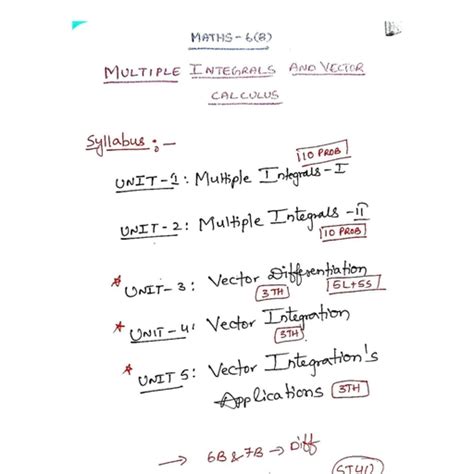 MATHS-6(B)
MULTIPLE INTEGRALS AND VECTOR
CALCULUS
Syllabus :-
110 PROB
UNIT-1: Multiple Integrals-I
UNIT-2: Multiple Integrals-II
10 PROB
* UNIT-3: Vector Differentiation
3TH 5L+5S
* UNIT-4: Vector Integration
3TH
* UNIT 5: Vector Integration's
Applications 3TH
→ 6B & 7B → Diff